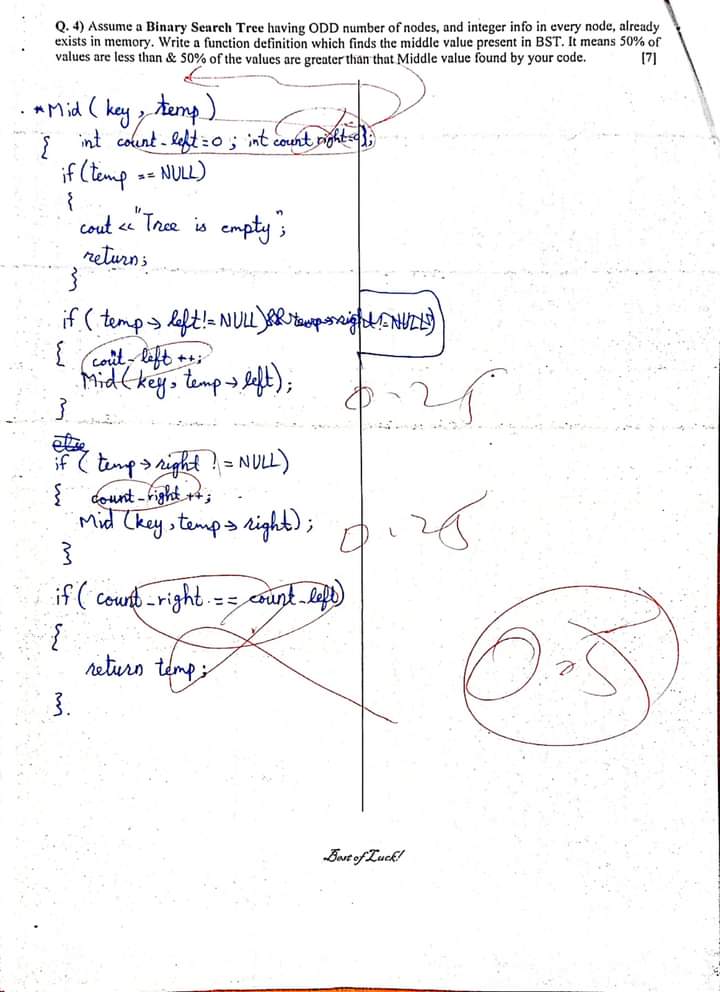 Q. 4) Assume a Binary Search Tree having ODD number of nodes, and integer info in every node, already
exists in memory. Write a function definition which finds the middle value present in BST. It means 50% of
values are less than & 50% of the values are greater than that Middle value found by your code. [7]
*Mid ( key , temp )
{ int count-left = 0 ; int count right=0;
if (temp == NULL)
{
cout << "Tree is empty";
return;
}
if ( temp → left != NULL) && temp→right != NULL)
{ count-left ++;
Mid ( key, temp → left );
}
0.25
else
if ( temp → right != NULL)
{ count-right ++;
Mid (key , temp → right) ;
}
0.25
if ( count-right == count-left)
{
return temp ;
}.
0.5
Best of Luck!